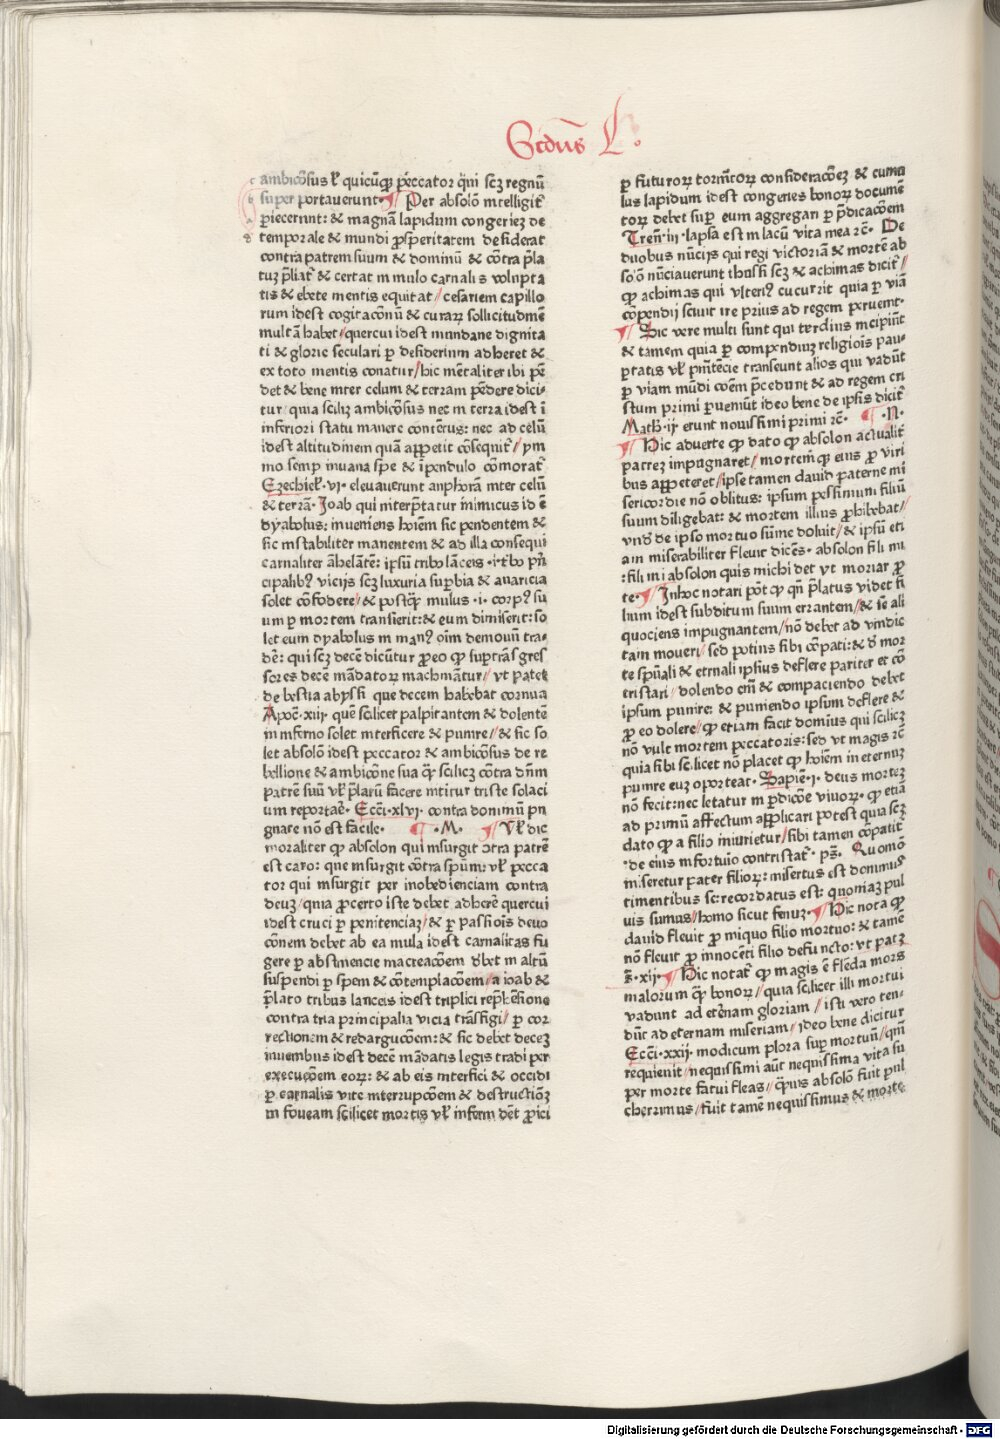 Scdūs L.
ambicōsus vł quicūqꝫ peccator q̄ui scꝫ regnū
super portauerunt Per absolō intelligit᷑
ꝓiecerunt: & magnā lapidum congeriez de
temporale & mundi ꝓsperitatem desiderat
contra patrem suum & dominū & cōtra p̄la
tuꝫ p̄liat᷑ & certat in mulo carnalis volupta
tis & ebete mentis equitat/ cesariem capillo
rum idest cogitacōnū & curaꝝ sollicitudinē
multā habet/ quercui idest mundane dignita
ti & glorie seculari ꝑ desiderium adheret &
ex toto mentis conatur/ hic mētaliter ibi pē
det & bene inter celum & terram pēdere dici-
tur quia sciliꝫ ambicōsus nec in terra idest ī
inferiori statu manere contētus: nec ad celū
idest altitudinem quā appetit cōsequit᷑/ ym
mo semꝑ in vana spe & ī pendulo cōmorat᷑
Ezechieł·vi· eleuauerunt anphorā inter celū
& terrā· Joab qui interp̄tatur inimicus id ē
dyabolus: inueniens hoīem sic pendentem &
sic instabiliter manentem & ad illa consequi
carnaliter āhelātē: ipsū tribꝰ lāceis ·i· tribꝰ pn̄
cipalibꝰ vicijs scꝫ luxuria suꝑbia & auaricia
solet cōfodere/ & postꝙ̄ mulus ·i· corpꝰ su
um ꝑ mortem transierit: & eum dimiserit: so
let eum dyabolus in manꝰ oīm demonū tra-
dē: qui scꝫ decē dicūtur ꝓeo ꝙ suꝑ trās gres
sores decē mādatoꝝ machināt᷑/ vt patet
de bestia abyssi que decem habebat cornua
Apoc̄·xiij· quē scilicet palpitantem & dolentē
in inferno solet interficere & punire// & sic so
let absolō idest peccator & ambicōsus de re
bellione & ambicōne sua q̄ꝫ sciliꝫ cōtra dn̄m
patrē suū vł p̄latū facere intitur triste solaci
um reportar̄· Ecci·xlvj· contra dominū pu
gnare nō est facile· ·M· Vł dic
moraliter ꝙ absolon qui insurgit ↄtra patrē
est caro: que insurgit cōtra spm̄: vł pecca
tor qui insurgit per inobedienciam contra
deuꝫ/ quia ꝓcerto iste debet adherē quercui
idest cruci ꝑ penitenciaꝫ/ & ꝑ passiōis deuo
cōnem debet ab ea mula idest carnalitas fu
gere ꝑ abstinencie macreacōem ꝺbet in altū
suspendi ꝑ spem & cōtemplacōem/ a ioab &
p̄lato tribus lanceis idest triplici rep̄hēsione
contra tria principalia vicia trāsfigi/ ꝑ cor
rectionem & redargucōem: & sic debet deceꝫ
iuuenibus idest decē mādatis legis tradi per
execucōem eoꝝ: & ab eis interfici & occidi
ꝑ carnalis vite interrupcōem & destructiōꝫ
in foueam scilicet mortis vł inferni dēt ꝓici
ꝑ futuroꝝ tormētoꝝ consideracōeꝫ & cumu
lus lapidum idest congeries bonoꝝ documē
toꝝ debet suꝑ eum aggregari ꝑ p̄dicacōem
Tren̄·iij· lapsa est in lacū vita mea ꝛc̄· De
duobus nūcijs qui regi victoriā & mortē ab
solō nūciauerunt ibusi scꝫ & achimas dicit᷑/
ꝙ achimas qui vlteriꝰ cucurrit quia ꝑ viā
cōpendij sciuit ire prius ad regem peruenit·
Sic vere multi sunt qui terdius incipiūt
& tamem quia ꝑ compendiuꝫ religiōis pau-
ꝑtatis vł pnītēcie transeunt alios qui vadūt
ꝑ viam mūdi cōem p̄cedunt & ad regem cri
stum primi ꝑueniūt ideo bene de ipsis dicit᷑
Math·ij· erunt nouissimi primi ꝛc̄· ·N·
Hic aduerte ꝙ dato ꝙ absolon actualit᷑
patreꝫ impugnaret/ mortemqꝫ eius ꝓ viri
bus appeteret/ ipse tamen dauid paterne mi
sericordie nō oblitus: ipsum pessimum filiū
suum diligebat: & mortem illius ꝓhibebat/
vnꝺ̄ de ipso mortuo sūme doluit/ & ipsū eti
am miserabiliter fleuit dicēs· absolon fili mi
:fili mi absolon quis michi det vt moriar ꝓ
te· Inhoc notari pōt ꝙ qn̄ p̄latus videt fi
lium idest subditum suum errantem/ & sē ali
quociens impugnantem/ nō debet ad vindic
tam moueri/ sed potius sibi cōpati: & ꝺ mor
te spūali & etrnali ipsius deflere pariter et cō
tristari/ dolendo em̄ & compaciendo debet
ipsum punire: & puniendo ipsum deflere &
ꝓ eo dolere/ ꝙ etiam facit domīus qui sciliꝫ
nō vult mortem peccatoris: sed vt magis ꝛc̄
quia sibi scilicet nō placet ꝙ hoīem in eternuꝫ
punire euꝫ oporteat· Sapiē·i· deus morteꝫ
nō fecit: nec letatur in ꝑdicōe viuoꝝ· ꝙ etiā
ad primū affectum applicari potest quia scꝫ
dato ꝙ a filio iniurietur/ sibi tamen cōpatit᷑
·de eius infortuīo contristat᷑· ps̄· Quomō
miseretur pater filioꝝ: misertus est dominus
timentibus se: recordatus est: quoniaꝫ pul
uis sumus/ homo sicut fenuꝫ· Hic nota ꝙ
dauid fleuit ꝓ iniquo filio mortuo: & tamē
nō fleuit ꝓ innocēti filio defuncto: vt patꝫ
s̄·xij· Hic notat᷑ ꝙ magis ē flenda mors
malorum ꝙ̄ bonoꝝ/ quia scilicet illi mortui
vadunt ad etēnam gloriam/ isti vero ten-
dūt ad eternam miseriam/ ideo bene dicitur
Ecci·xxij· modicum plora suꝑ mortuū/ qm̄
requieuit/ nequissimi aūt nequissima vita su
per morte fatui fleas/ q̄uis absolō fuit pul
cherrimus/ fuit tamē nequissimus & morte
Digitalisierung gefördert durch die Deutsche Forschungsgemeinschaft - DFG